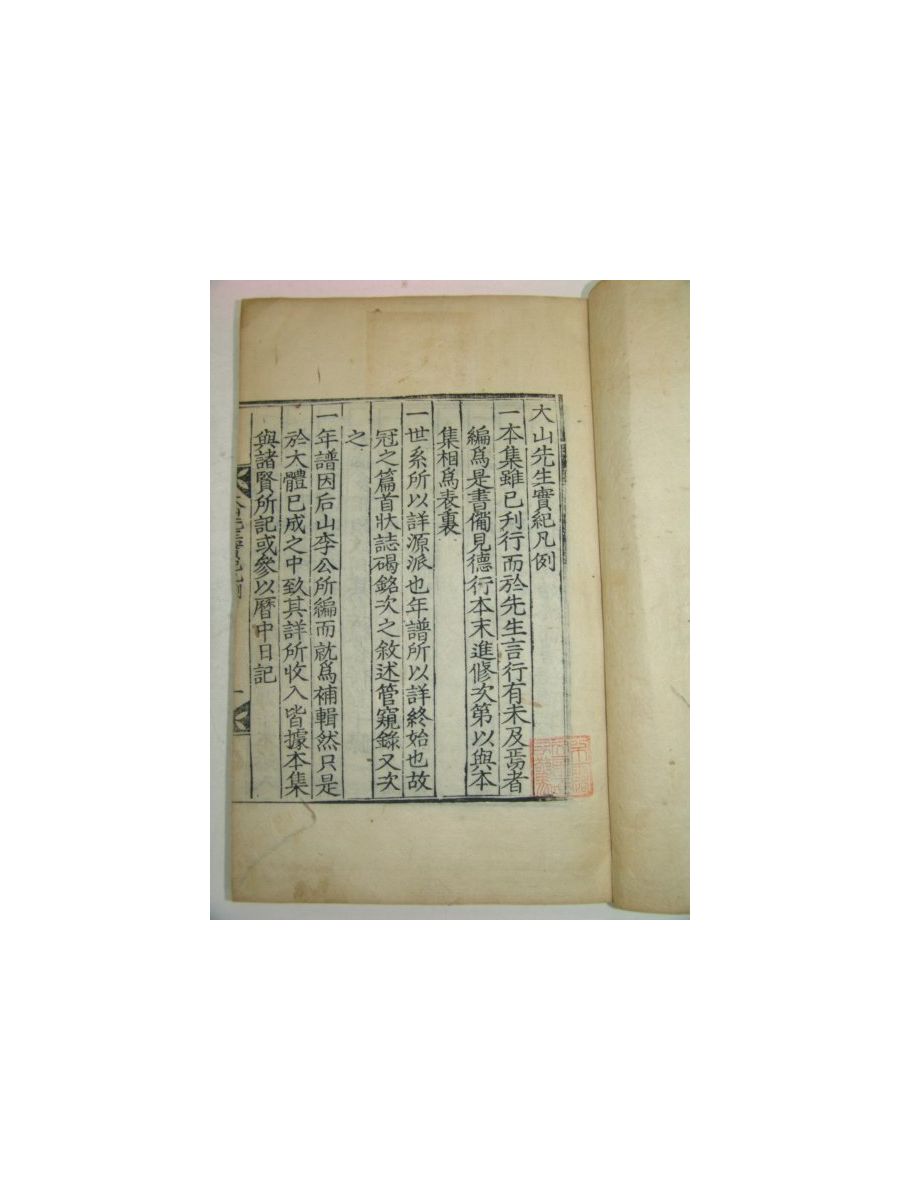 大山先生實紀凡例
一本集雖已刋行而於先生言行有未及焉者
編爲是書備見德行本末進修次第以與本
集相爲表裏
一世系所以詳源派也年譜所以詳終始也故
冠之篇首狀誌碣銘次之敘述管窺錄又次
之
一年譜因后山李公所編而就爲補輯然只是
於大體已成之中致其詳所收入皆據本集
與諸賢所記或參以曆中日記